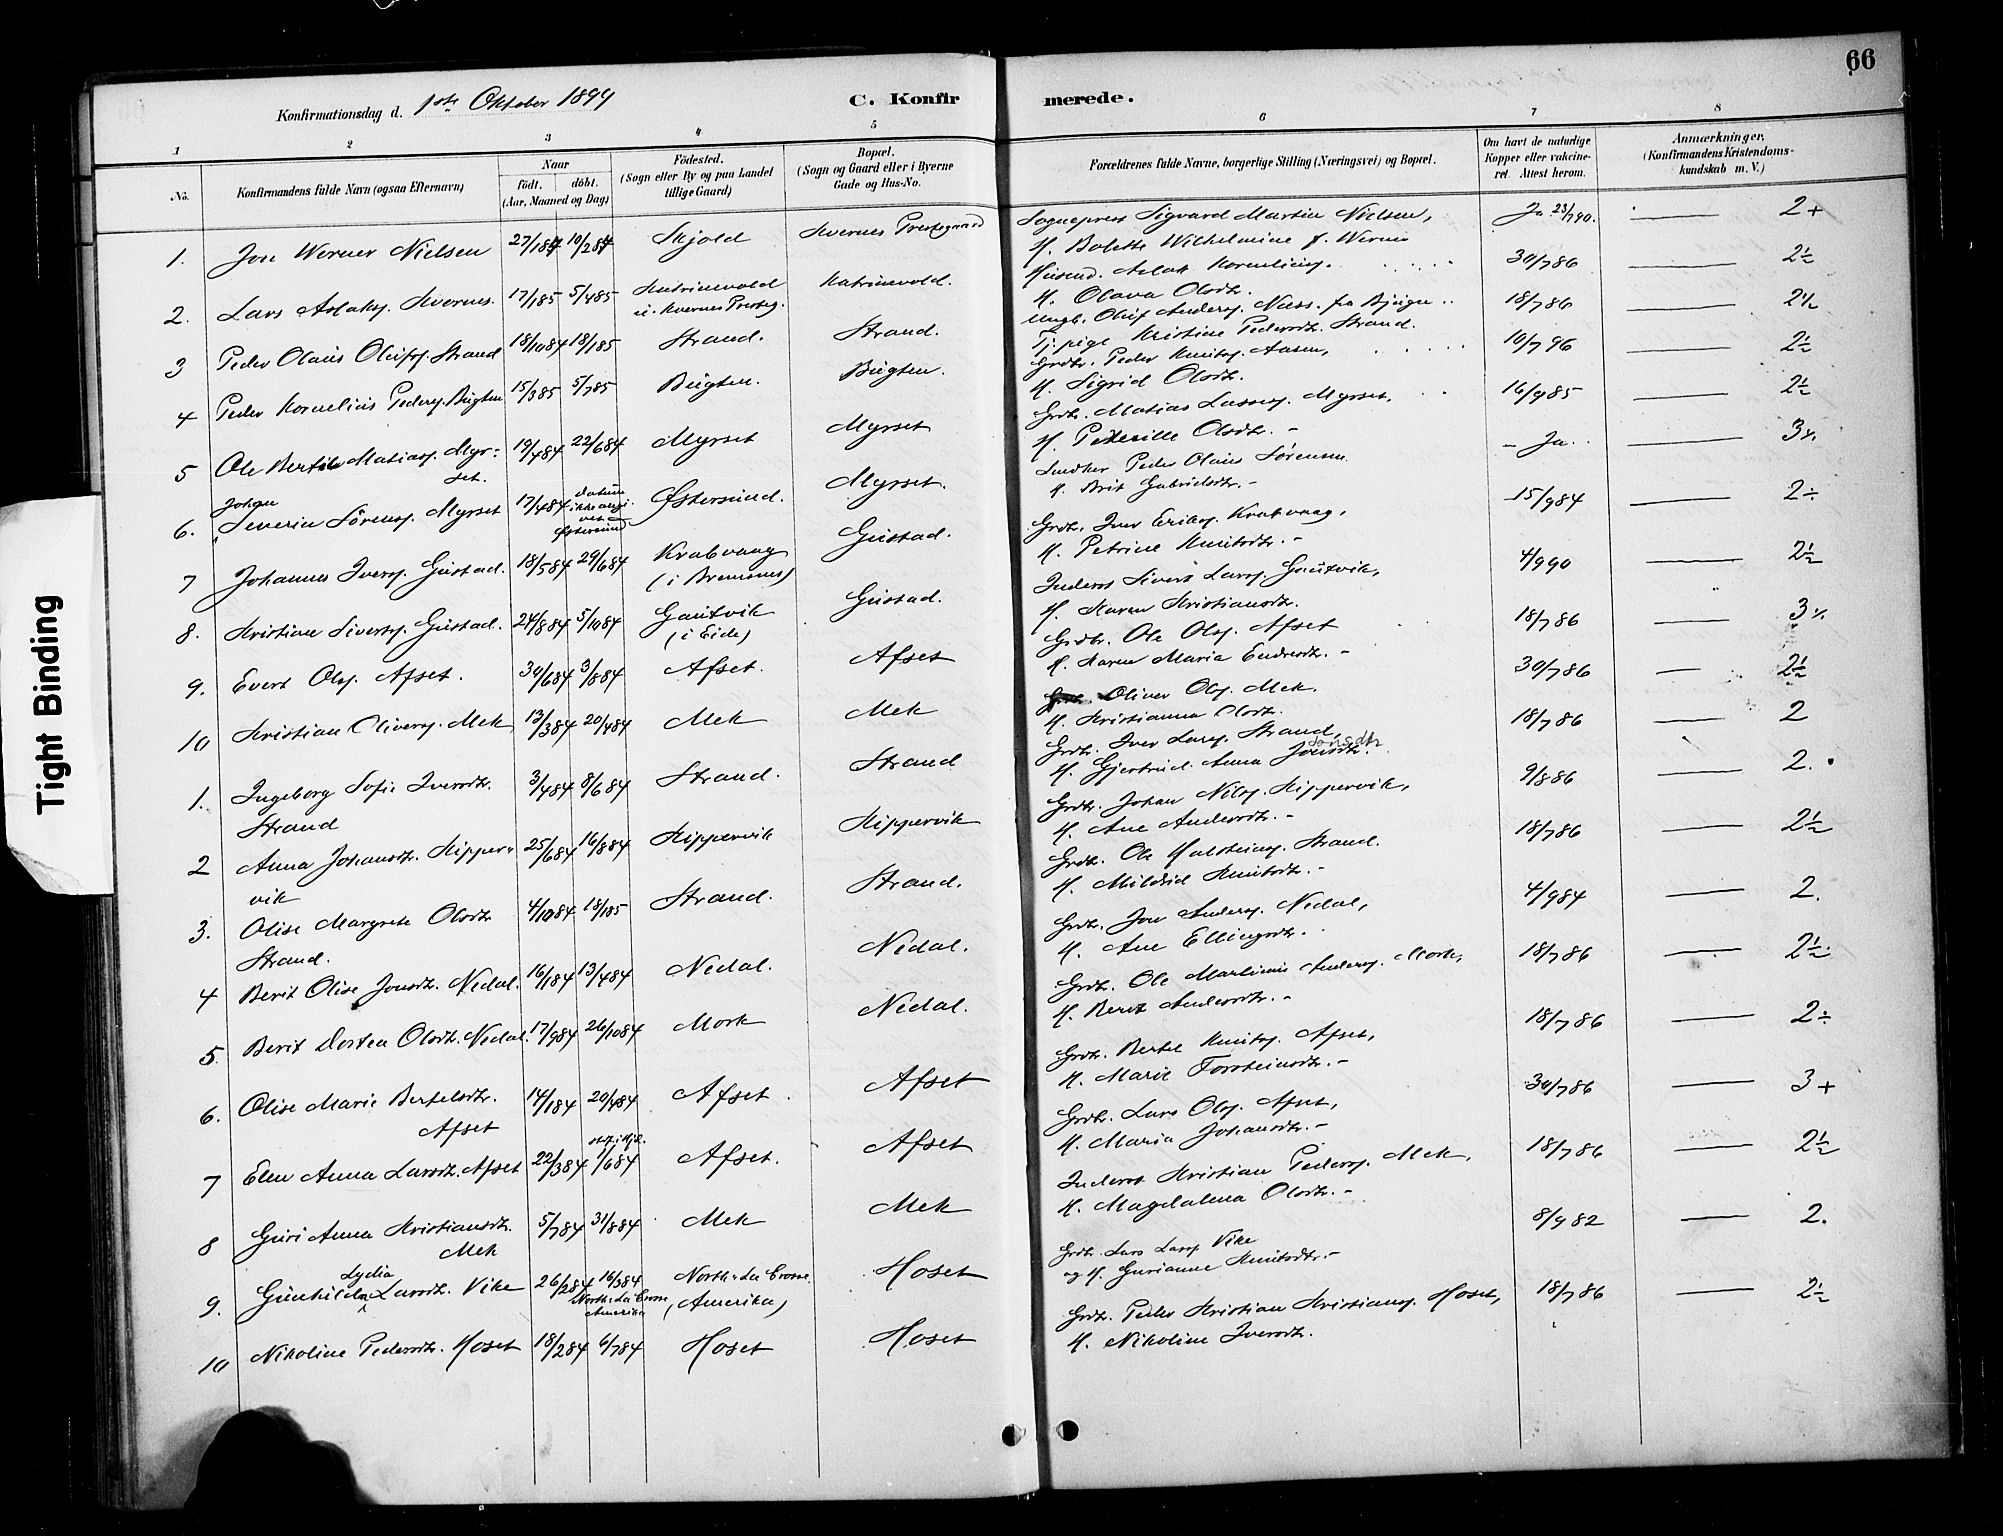 66
Konfirmationsdag d. 1ste Oktober 1899
C. Konfir merede.
1 2 3 4 5 6 7 8
No.
Konfirmandens fulde Navn (ogsaa Efternavn)
Naar
födt. döbt.
(Aar, Maaned og Dag)
Födested.
(Sogn eller By og paa Landet
tillige Gaard)
Bopæl.
(Sogn og Gaard eller i Byerne
Gade og Hus-No.
Forældrenes fulde Navne, borgerlige Stilling (Næringsvei) og Bopæl.
Om havt de naturlige
Kopper eller vakcine-
ret. Attest herom.
Anmærkninger.
(Konfirmandens Kristendoms-
kundskab m. V.)
Sogneprest Sigvard Martin Nielsen, Ja 23/7 90. 2+
1. Jon Werner Nielsen 27/1 84 10/2 84 Skjold Kvernes Prestegaard
H. Bolette Wilhelmine f. Werner
30/7 86 2½
2. Lars Aslaks. Kvernes. 17/1 85 5/4 85 Katrinevold
i Kvernes Presteg. Katrinevold.
H. Olava Olsdtr.
Ungk. Oluf Anders. Næss. fra Bjugn 18/7 86 2½
3 Peder Olaus Olufs. Strand 18/10 84 18/1 85 Strand. Strand.
Tj.pige Kristine Pedersdtr. Strand.
Grdbr. Peder Knuts. Aasen, 10/7 96 2½
4 Peder Kornelius Peders. Bugten 15/3 85 5/7 85 Bugten. Bugten.
H. Sigrid Olsdtr.
Grdbr. Matias Lasses. Myrset, 16/9 85 2½
5 Ole Bertil Matias. Myr-
set. 19/4 84 22/6 84 Myrset Myrset
H. Pernille Olsdtr. -
Snedker Peder Olaus Sørensen - Ja. 3
H. Brit Gabrielsdtr. -
6. Johan
Severin Sörens. Myrset 17/4 84 datum
ikke angi-
vet
Østersund Østersund. Myrset.
Grdbr. Iver Eriks. Krabvaag, 15/9 84 2÷
7 Johannes Ivers. Gustad. 18/5 84 29/6 84 Krabvaag
(i Bremsnes) Gustad.
H. Petrine Knutsdtr. -
Inderst Sivert Lars. Gautvik, 4/9 90 2½
8. Kristian Siverts. Gustad. 24/8 84 5/10 84 Gautvik
(i Eide) Gustad.
H. Karen Kristiansdtr.
Grdbr. Ole Ols. Afset 18/7 86 3
9. Evert Ols. Afset. 30/6 84 3/8 84 Afset. Afset
H. Karen Maria Endresdtr. -
Oliver Ols. Mek. 30/7 86 2½
10 Kristian Olivers. Mek 13/3 84 20/4 84 Mek Mek
H. Kristianna Olsdtr.
Grdbr. Iver Lars. Strand, 18/7 86 2
1. Ingeborg Sofie Iversdtr.
Strand 3/4 84 8/6 84 Strand. Strand
H. Gjertrud Anna Jonsdtr.
Jonsdtr
Grdbr. Johan Nils. Kippervik, 9/8 86 2.
2 Anna Johansdtr. Kipper-
vik 25/6 84 16/8 84 Kippervik Kippervik
H. Ane Andersdtr. -
Grdbr. Ole Halsteins. Strand. 18/7 86 2½
3. Olise Margrete Olsdtr
Strand. 4/10 84 18/1 85 Strand. Strand.
H. Mildrid Knutsdtr. -
Grdbr. Jon Anders. Nedal, 4/9 84 2.
4 Berit Olise Jonsdtr. Nedal. 16/1 84 13/4 84 Nedal. Nedal.
H. Ane Ellingsdtr.
Grdbr. Ole Martinus Anders. Mork, 18/7 86 2½
5. Berit Dortea Olsdtr. Nedal. 17/9 84 26/10 84 Mork Nedal.
H. Berit Andersdtr. -
Grdbr. Bertel Knuts. Afset, 18/7 86 2÷
6. Olise Marie Bertelsdtr.
Afset 14/1 84 20/4 84 Afset Afset
H. Marie Torsteinsdtr. -
Grdbr. Lars Ols. Afset, 30/7 86 3+
7 Elen Anna Larsdtr. Afset 22/3 84 1/6 84 Afset. Afset
H. Maria Johansdtr. -
Inderst Kristian Peders. Mek, 18/7 86 2½
8 Guri Anna Kristiansdtr.
Mek 5/7 84 31/8 84 Mek Mek
H. Magdalena Olsdtr. -
Grdbr. Lars Lars. Vike 8/9 82 2.
9. Lydia
Gunhilda Larsdtr. Vike 26/2 84 16/3 84
North-La Crosse
Amerika North-La Crosse
(Amerika) Hoset
og H. Gurianne Knutsdtr. -
Grdbr. Peder Kristian Kristians. Hoset, 18/7 86 2½
10 Nikoline Pedersdtr. Hoset 18/2 84 6/7 84 Hoset Hoset
H. Nikoline Iversdtr.
Tight Binding